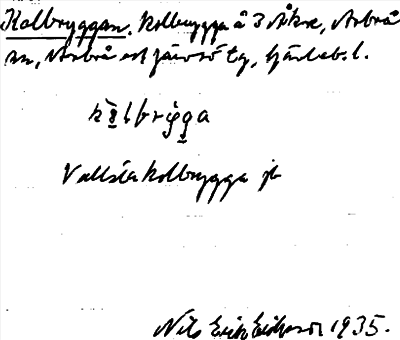 Kolbryggan. Kolbrygga å 3 Åkre, Arbrå
sn, Arbrå och Järvsö tg, Gävleb. l.
kòlbrig̀ga
Vallsta kolbrygga jb
Nils Erik Eriksson 1935.